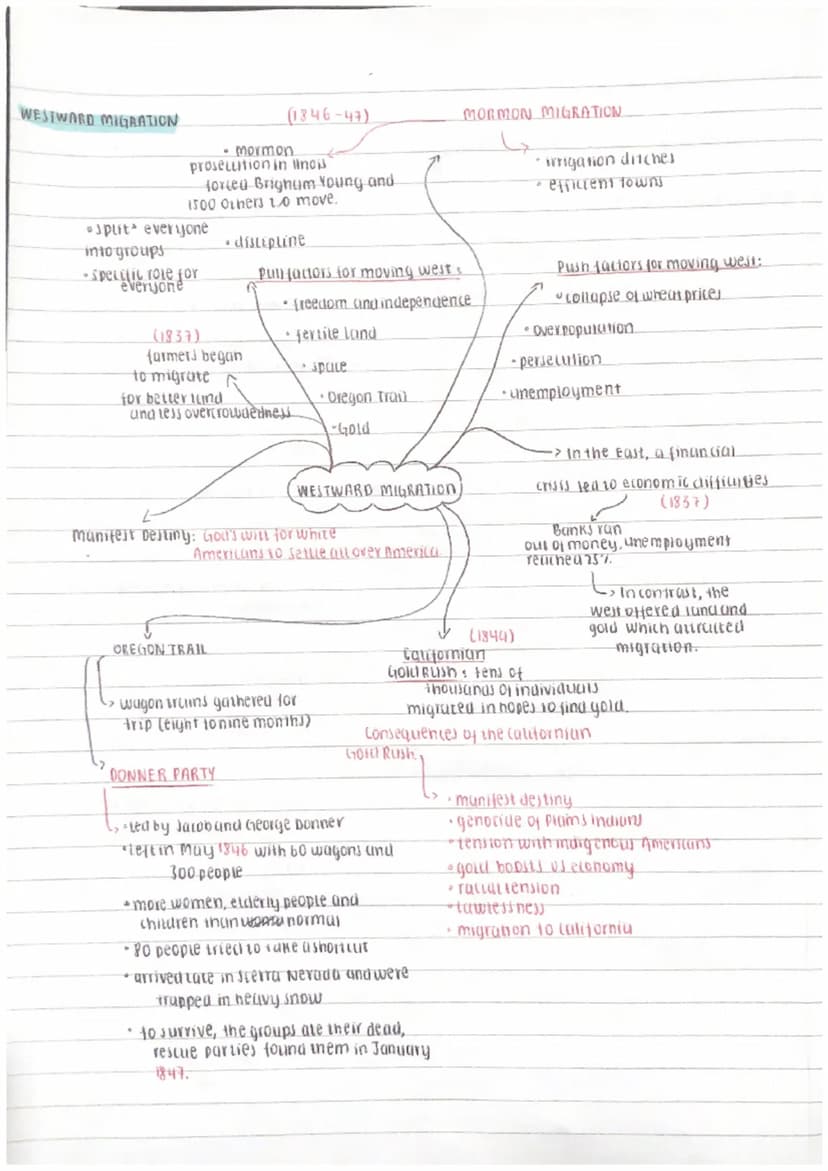 WESTWARD MIGRATION
(1846-47)
MORMON MIGRATION
• mormon
prosecution in Ilnois
forced Brighum Young and
1500 others to move.
• irrigation ditches
• efficient towns
• split* everyone
into groups
• discipline
• specific role for
everyone
Pull factors for moving west:
• freedom and independence
• fertile land
• space
• Oregon Trail
- Gold
Push factors for moving west:
• collapse of wheat prices
• overpopulation
• persecution
• unemployment
(1837)
farmers began
to migrate
for better land
and less overcrowdedness
In the East, a financial
crisis led to economic difficulties
(1837)
WESTWARD MIGRATION
Manifest Destiny: God's will for white
Americans to settle all over America
Banks ran
out of money, unemployment
reached 25%.
In contrast, the
west offered land and
gold which attracted
migration.
OREGON TRAIL
wagon trains gathered for
trip (eight to nine months)
Californian
Gold Rush: tens of
thousands of individuals
migrated in hopes to find gold.
Consequences of the Californian
Gold Rush
• manifest destiny
• genocide of Plains Indians
• tension with indigenous Americans
• gold boosts US economy
• racial tension
• lawlessness
• migration to California
DONNER PARTY
• led by Jacob and George Donner
• left in May 1846 with 60 wagons and
300 people
• more women, elderly people and
children than normal
• 80 people tried to take a shortcut
• arrived late in Sierra Nevada and were
trapped in heavy snow
• to survive, the groups ate their dead,
rescue parties found them in January
1847.